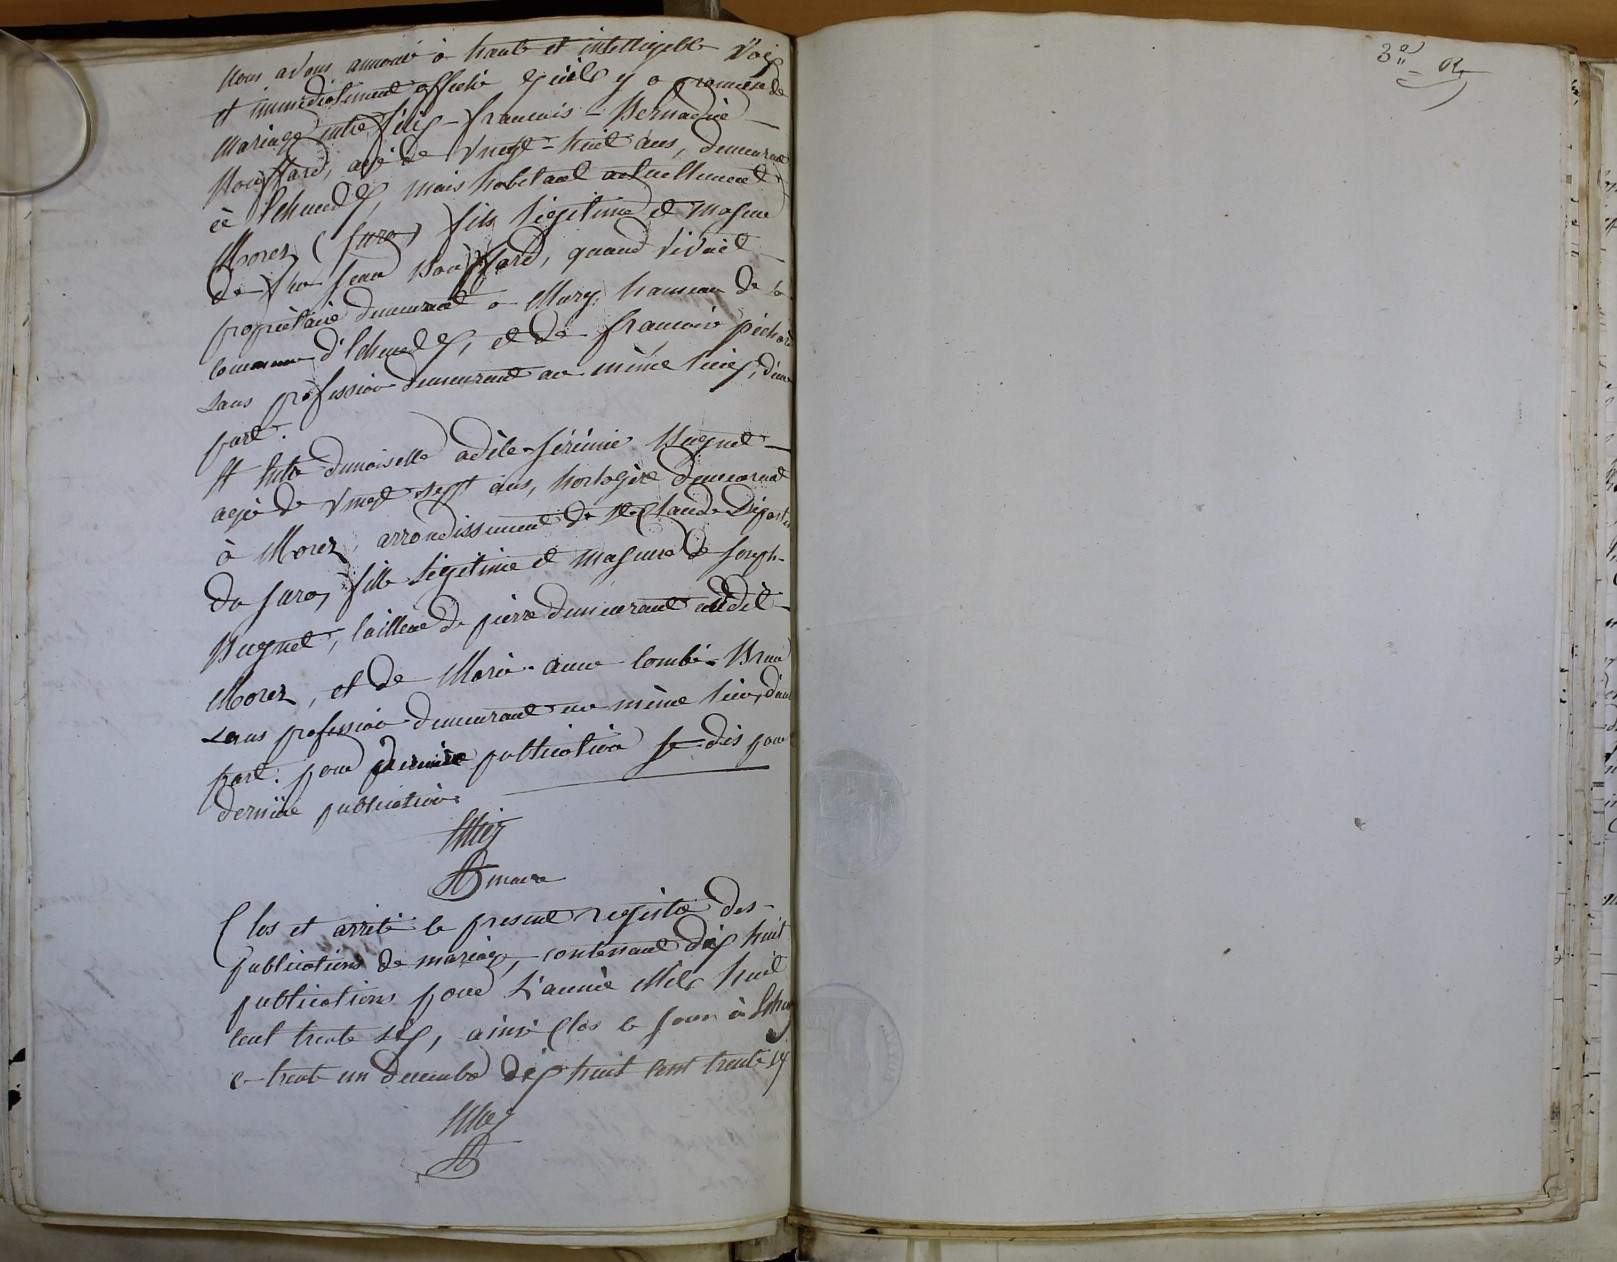 nous avons annoncé à haute et intelligible Voix
et immédiatement affiché qu'il y a promesse de
mariage entre félix-francois-Bernadin
Bouffard, agé de Vingt-huit ans, demeurant
à mais habitant actuellement
Morez (Jura) fils légitime et majeur
de feu Jean Bouffard, quand vivait
propriétaire demeurant à Mury, hameau de la
commune et de francoise pichon
sans profession demeurant au même lieu, d'une
part.
Et entre demoiselle adèle-Sérénie Bugnet
agée de Vingt sept ans, horlogère demeurant
à Morez, arrondissement de St Claude Départ
du Jura, fille légitime et majeure de Joseph-
Bugnet, tailleur de pierre demeurant audit
Morez, et de Marie-anne Combe-Brun
sans profession demeurant au même lieu, d'une
part. pour publication je dis pour
dernière publication.
maire
Clos et arrêté le présent registre des
publications de mariage, contenant dix huit
publications pour L'année Mil huit
cent trente six, ainsi Clos ce jour à
ce trente un Decembre dix huit cent trente six
3e